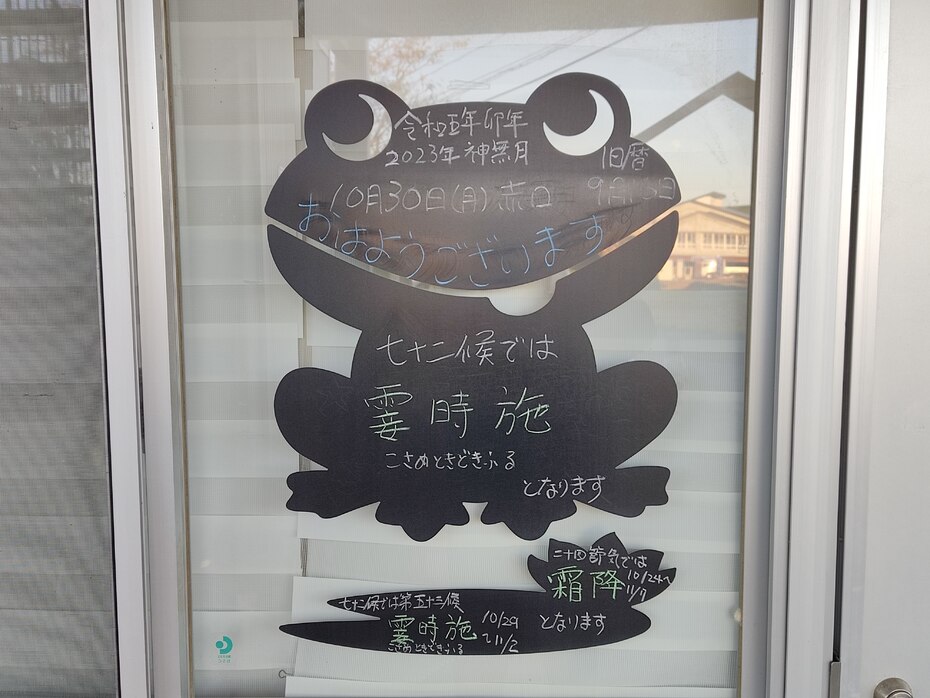 令和五年卯年
2023年神無月
旧暦
10月30日(月)赤口
おはようございます
七十二候では
霎時施
こさめときどきふる
となります
二十四節気では
霜降
10/24~
11/7
七十二候では第五十三候
霎時施
10/29
~11/2
こさめときどきふる
となります